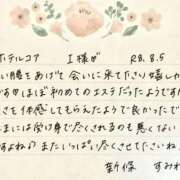 ホテルコア　I様が　R8.8.5
い腰をあげて会いに来て下さり嬉しか
ですがほぼ初めてのエステだったようですが
さを体感してもらえたようで良かったです
まには受け身で尽くされるのも悪くない
すよね♪またいっぱい尽くさせてくださいね
新條　すみれ